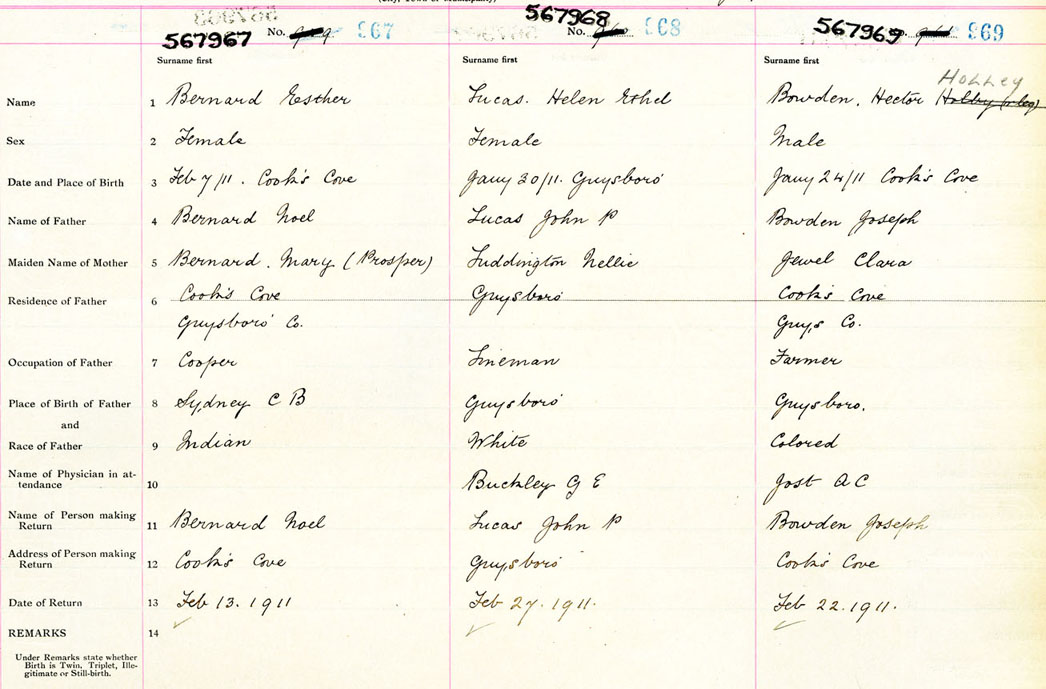 (City, Town or Municipality)
567967 No. 967 567968 No. 968 567969 No. 969
Surname first Surname first Surname first
HOLLEY
Name 1 Bernard Esther Lucas. Helen Ethel Bowden, Hector
Sex 2 Female Female Male
Date and Place of Birth 3 Feb 7/11. Cook's Cove Jany 30/11. Guysboro' Jany 24/11 Cook's Cove
Name of Father 4 Bernard Noel Lucas John P Bowden Joseph
Maiden Name of Mother 5 Bernard. Mary (Prosper) Luddington Nellie Jewel Clara
Residence of Father 6 Cook's Cove Guysboro' Cook's Cove
Guysboro' Co. Guys Co.
Occupation of Father 7 Cooper Lineman Farmer
Place of Birth of Father 8 Sydney C B Guysboro' Guysboro.
and
Race of Father 9 Indian White Colored
Name of Physician in at-
tendance 10 Buckley G E Jost A C
Name of Person making
Return 11 Bernard Noel Lucas John P Bowden Joseph
Address of Person making
Return 12 Cook's Cove Guysboro' Cook's Cove
Date of Return 13 Feb 13. 1911 Feb 27. 1911. Feb 22. 1911.
REMARKS 14
Under Remarks state whether
Birth is Twin, Triplet, Ille-
gitimate or Still-birth.